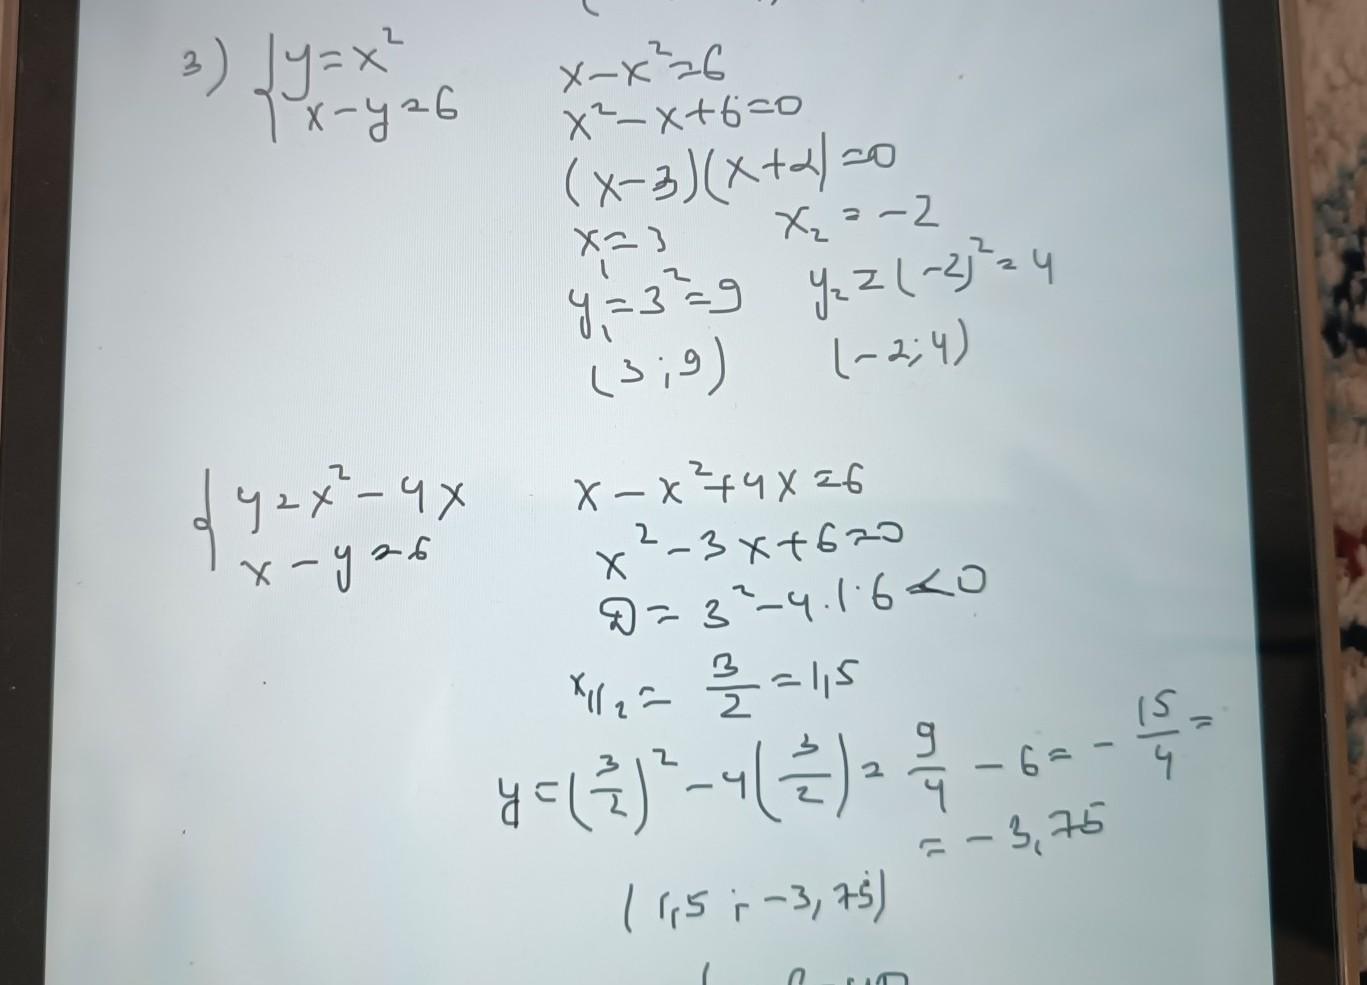 3) { y = x²
x - y = 6
x - x² = 6
x² - x + 6 = 0
(x - 3)(x + 2) = 0
x₁ = 3 x₂ = -2
y₁ = 3² = 9 y₂ = (-2)² = 4
(3 ; 9) (-2; 4)
{ y = x² - 4x
x - y = 6
x - x² + 4x = 6
x² - 3x + 6 = 0
D = 3² - 4 · 1 · 6 < 0
x₁,₂ = 3/2 = 1,5
y = (3/2)² - 4(3/2) = 9/4 - 6 = - 15/4 =
= - 3,75
(1,5 ; -3,75)